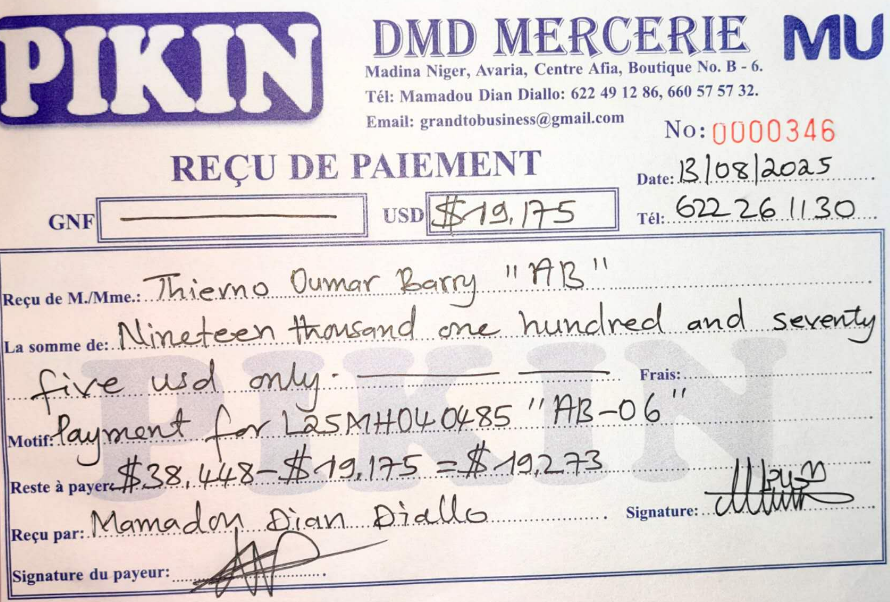 PIKIN
DMD MERCERIE
MU
Madina Niger, Avaria, Centre Afia, Boutique No. B - 6.
Tél: Mamadou Dian Diallo: 622 49 12 86, 660 57 57 32.
Email: grandtobusiness@gmail.com
No: 0000346
REÇU DE PAIEMENT
Date: 13/08/2025
GNF
USD $19,175
Tél: 622 26 11 30
Reçu de M./Mme.: Thierno Oumar Barry "AB"
La somme de: Nineteen thousand one hundred and seventy
five usd only.
Frais:
Motif: Payment for L25MH040485 "AB-06"
Reste à payer: $38,448-$19,175 = $19,273
Reçu par: Mamadou Dian Diallo
Signature:
Signature du payeur:
PIKIN